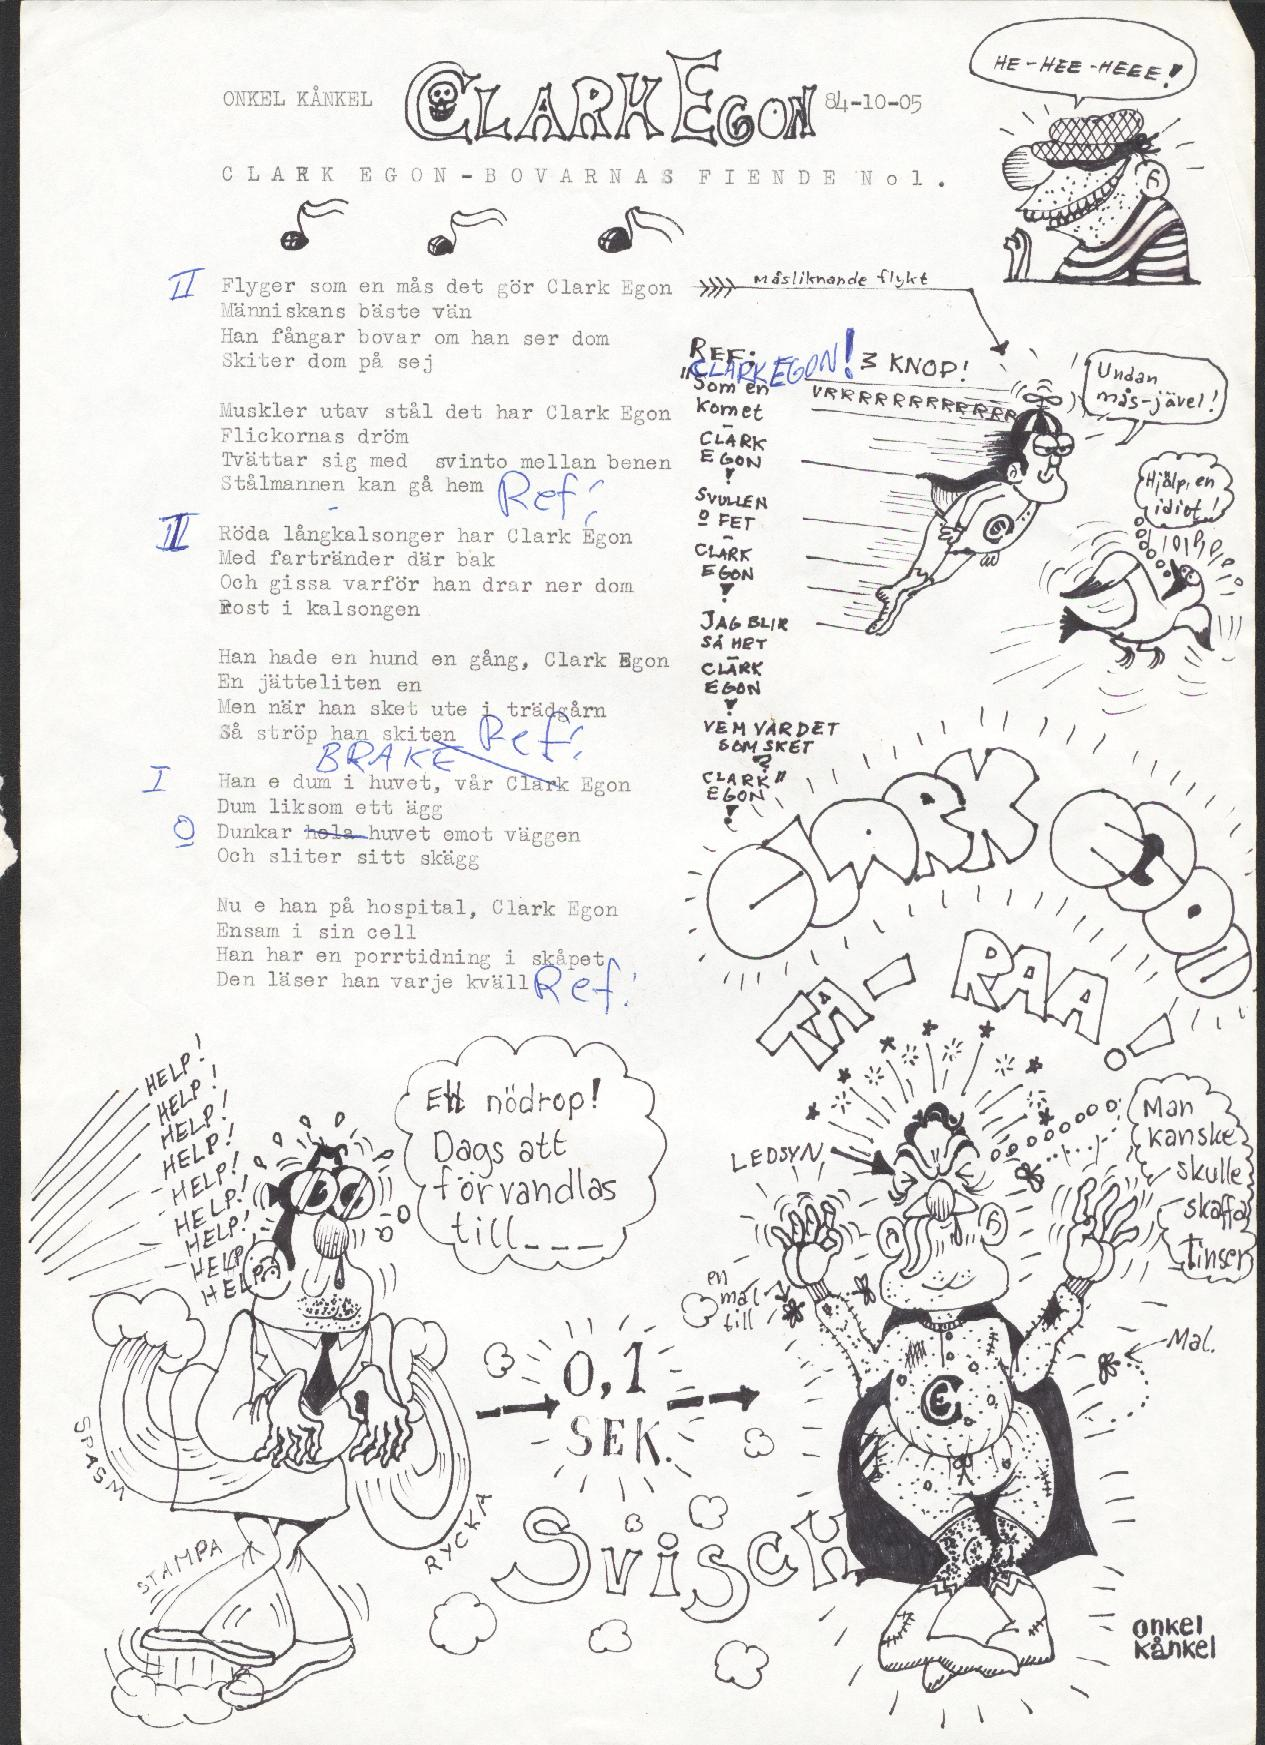 HE-HEE-HEEE!
ONKEL KÅNKEL
CLARK EGON
84-10-05
CLARK EGON-BOVARNAS FIENDE No1.
II
Flyger som en mås det gör Clark Egon
Människans bäste vän
Han fångar bovar om han ser dom
Skiter dom på sej
Muskler utav stål det har Clark Egon
Flickornas dröm
Tvättar sig med svinto mellan benen
Stålmannen kan gå hem
Ref!
III
Röda långkalsonger har Clark Egon
Med fartränder där bak
Och gissa varför han drar ner dom
Rost i kalsongen
Han hade en hund en gång, Clark Egon
En jätteliten en
Men när han sket ute i trädgårn
Så ströp han skiten
Ref!
BRAKE
I
Han e dum i huvet, vår Clark Egon
Dum liksom ett ägg
O
Dunkar hela huvet emot väggen
Och sliter sitt skägg
Nu e han på hospital, Clark Egon
Ensam i sin cell
Han har en porrtidning i skåpet
Den läser han varje kväll
Ref!
måsliknande flykt
REF:
"CLARK EGON!
Som en
komet
-
CLARK
EGON
!
SVULLEN
O FET
-
CLARK
EGON
!
JAG BLIR
SÅ HET
-
CLARK
EGON
!
VEM VAR DET
SOM SKET
?
CLARK"
EGON
!
3 KNOP!
VRRRRRRRRRRRRR
Undan
mås-jävel!
Hjälp, en
idiot!
CLARK EGON
TA-RAA!
HELP!
HELP!
HELP!
HELP!
HELP!
HELP!
HELP!
HELP
HELP
Ett nödrop!
Dags att
förvandlas
till___
LEDSYN
Man
kanske
skulle
skaffa
Tinser
en
mal
till
Mal.
0,1
SEK.
SPASM
RYCKA
STAMPA
Svisch
onkel
kånkel